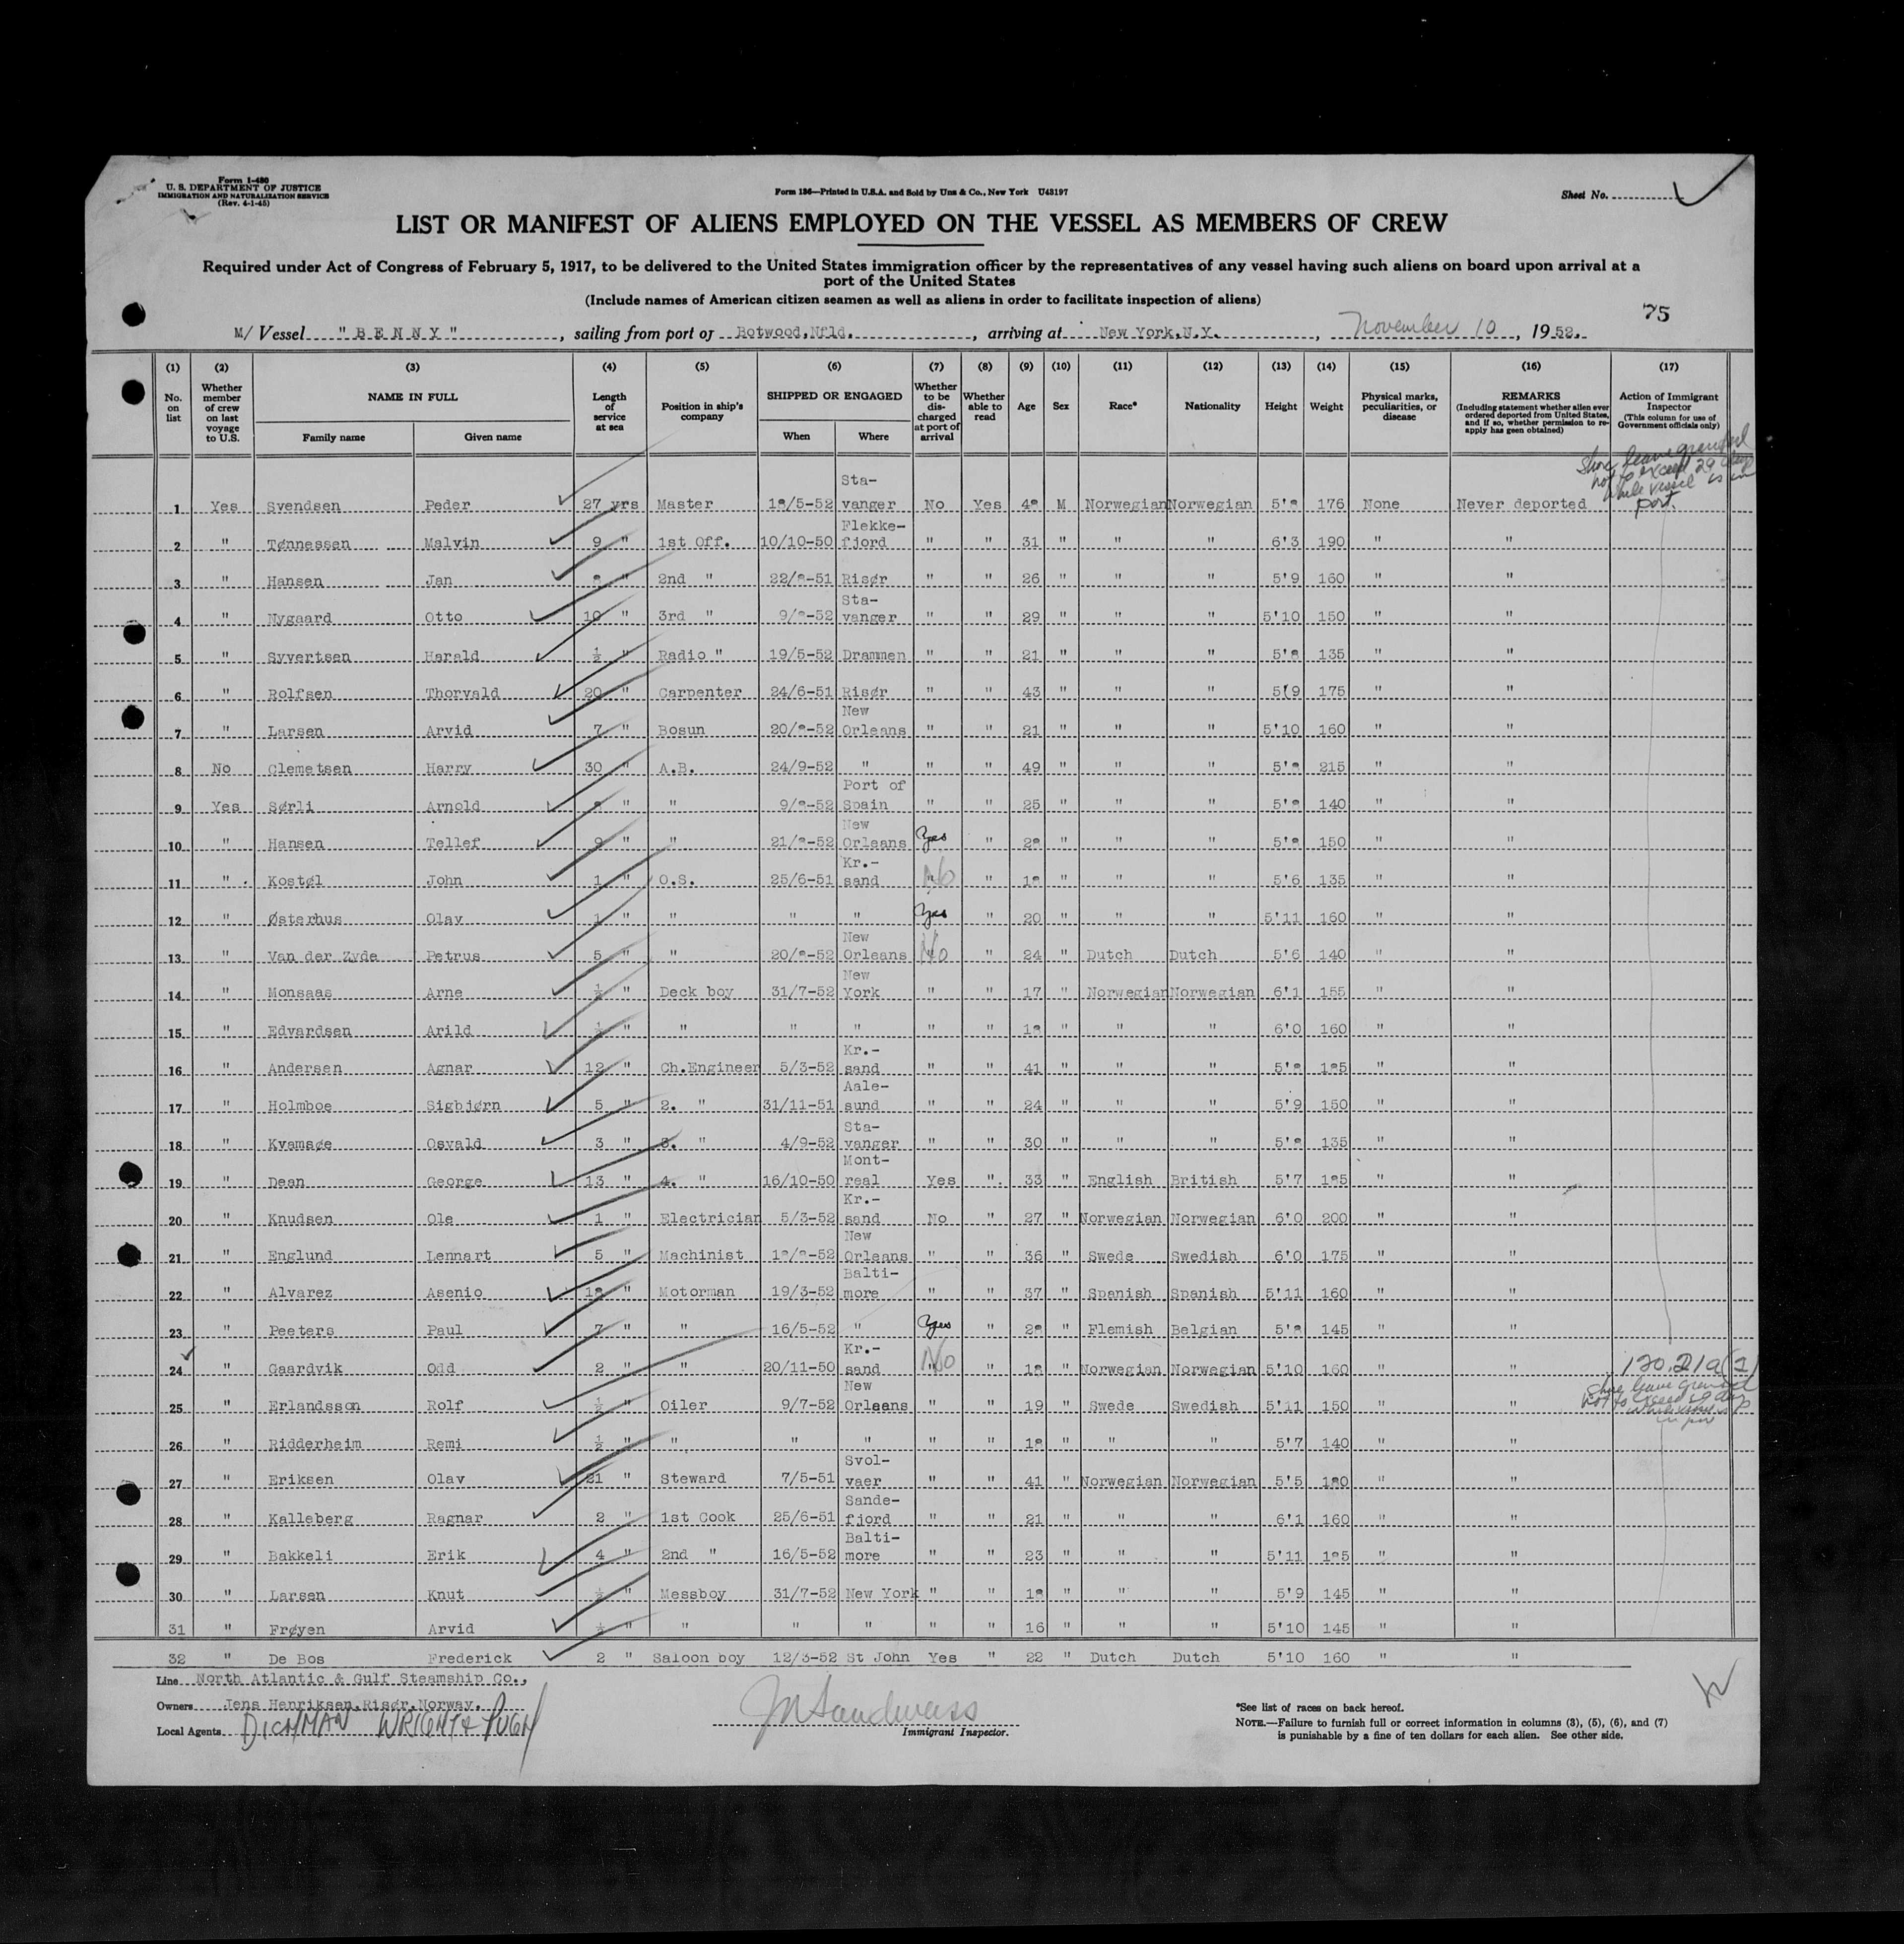 Form I-480
U. S. DEPARTMENT OF JUSTICE
IMMIGRATION AND NATURALIZATION SERVICE
(Rev. 4-1-45)
Form 136—Printed in U.S.A. and Sold by Unz & Co., New York U43197
Sheet No.
LIST OR MANIFEST OF ALIENS EMPLOYED ON THE VESSEL AS MEMBERS OF CREW
Required under Act of Congress of February 5, 1917, to be delivered to the United States immigration officer by the representatives of any vessel having such aliens on board upon arrival at a
port of the United States
(Include names of American citizen seamen as well as aliens in order to facilitate inspection of aliens)
75
M/ Vessel "BENNY", sailing from port of Botwood, Nfld., arriving at New York, N.Y., November 10, 1952.
(1) No. on list (2) Whether member of crew on last voyage to U.S. (3) NAME IN FULL Family name Given name (4) Length of service at sea (5) Position in ship's company (6) SHIPPED OR ENGAGED When Where (7) Whether to be discharged at port of arrival (8) Whether able to read (9) Age (10) Sex (11) Race* (12) Nationality (13) Height (14) Weight (15) Physical marks, peculiarities, or disease (16) REMARKS (Including statement whether alien ever ordered deported from United States, and if so, whether permission to re-apply has geen obtained) (17) Action of Immigrant Inspector (This column for use of Government officials only)
Shore leave granted
not to exceed 29 days
while vessel is in
port.
1 Yes Svendsen Peder 27 yrs Master 18/5-52 Sta-vanger No Yes 48 M Norwegian Norwegian 5'8 176 None Never deported
2 " Tønnessen Malvin 9 " 1st Off. 10/10-50 Flekke-fjord " " 31 " " " 6'3 190 " "
3 " Hansen Jan 8 " 2nd " 22/8-51 Risør " " 26 " " " 5'9 160 " "
4 " Nygaard Otto 10 " 3rd " 9/8-52 Sta-vanger " " 29 " " " 5'10 150 " "
5 " Syvertsen Harald ½ " Radio " 19/5-52 Drammen " " 21 " " " 5'8 135 " "
6 " Rolfsen Thorvald 20 " Carpenter 24/6-51 Risør " " 43 " " " 5'9 175 " "
7 " Larsen Arvid 7 " Bosun 20/8-52 New Orleans " " 21 " " " 5'10 160 " "
8 No Clemetsen Harry 30 " A.B. 24/9-52 " " " 49 " " " 5'8 215 " "
9 Yes Sørli Arnold 8 " " 9/8-52 Port of Spain " " 25 " " " 5'8 140 " "
10 " Hansen Tellef 9 " " 21/8-52 New Orleans Yes " 28 " " " 5'8 150 " "
11 " Kostøl John 1 " O.S. 25/6-51 Kr.-sand No " 18 " " " 5'6 135 " "
12 " Østerhus Olav 1 " " " " Yes " 20 " " " 5'11 160 " "
13 " Van der Zyde Petrus 5 " " 20/8-52 New Orleans No " 24 " Dutch Dutch 5'6 140 " "
14 " Monsaas Arne ½ " Deck boy 31/7-52 New York " " 17 " Norwegian Norwegian 6'1 155 " "
15 " Edvardsen Arild ½ " " " " " " 18 " " " 6'0 160 " "
16 " Andersen Agnar 12 " Ch.Engineer 5/3-52 Kr.-sand " " 41 " " " 5'8 185 " "
17 " Holmboe Sigbjørn 5 " 2. " 31/11-51 Aale-sund " " 24 " " " 5'9 150 " "
18 " Kvamsøe Osvald 3 " 3. " 4/9-52 Sta-vanger " " 30 " " " 5'8 135 " "
19 " Dean George 13 " 4. " 16/10-50 Mont-real Yes " 33 " English British 5'7 185 " "
20 " Knudsen Ole 1 " Electrician 5/3-52 Kr.-sand No " 27 " Norwegian Norwegian 6'0 200 " "
21 " Englund Lennart 5 " Machinist 18/8-52 New Orleans " " 36 " Swede Swedish 6'0 175 " "
22 " Alvarez Asenio 18 " Motorman 19/3-52 Balti-more " " 37 " Spanish Spanish 5'11 160 " "
23 " Peeters Paul 7 " " 16/5-52 " Yes " 28 " Flemish Belgian 5'8 145 " "
24 " Gaardvik Odd 2 " " 20/11-50 Kr.-sand No " 18 " Norwegian Norwegian 5'10 160 " " 120.21a(1)
Shore leave granted
not to exceed 29 days
while vessel is
in port
25 " Erlandsson Rolf ½ " Oiler 9/7-52 New Orleans " " 19 " Swede Swedish 5'11 150 " "
26 " Ridderheim Remi ½ " " " " " " 18 " " " 5'7 140 " "
27 " Eriksen Olav 21 " Steward 7/5-51 Svol-vaer " " 41 " Norwegian Norwegian 5'5 180 " "
28 " Kalleberg Ragnar 2 " 1st Cook 25/6-51 Sande-fjord " " 21 " " " 6'1 160 " "
29 " Bakkeli Erik 4 " 2nd " 16/5-52 Balti-more " " 23 " " " 5'11 185 " "
30 " Larsen Knut ½ " Messboy 31/7-52 New York " " 18 " " " 5'9 145 " "
31 " Frøyen Arvid ½ " " " " " " 16 " " " 5'10 145 " "
32 " De Bos Frederick 2 " Saloon boy 12/3-52 St John Yes " 22 " Dutch Dutch 5'10 160 " "
Line North Atlantic & Gulf Steamship Co.,
Owners Jens Henriksen, Risør, Norway.
Local Agents DICHMAN WRIGHT & PUGH
Immigrant Inspector.
*See list of races on back hereof.
NOTE.—Failure to furnish full or correct information in columns (3), (5), (6), and (7)
is punishable by a fine of ten dollars for each alien. See other side.